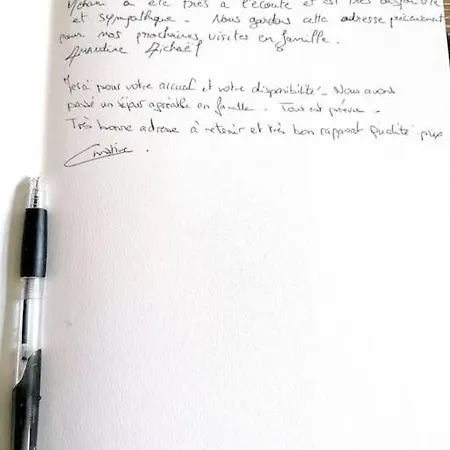 a été très à l'écoute et est très disponible
et sympathique. Nous gardons cette adresse précieusement
pour nos prochaines visites en famille.
Amandine Michaël
Merci pour votre accueil et votre disponibilité. Nous avons
passé un séjour agréable en famille. Tout est prévu.
Très bonne adresse à retenir et très bon rapport qualité prix